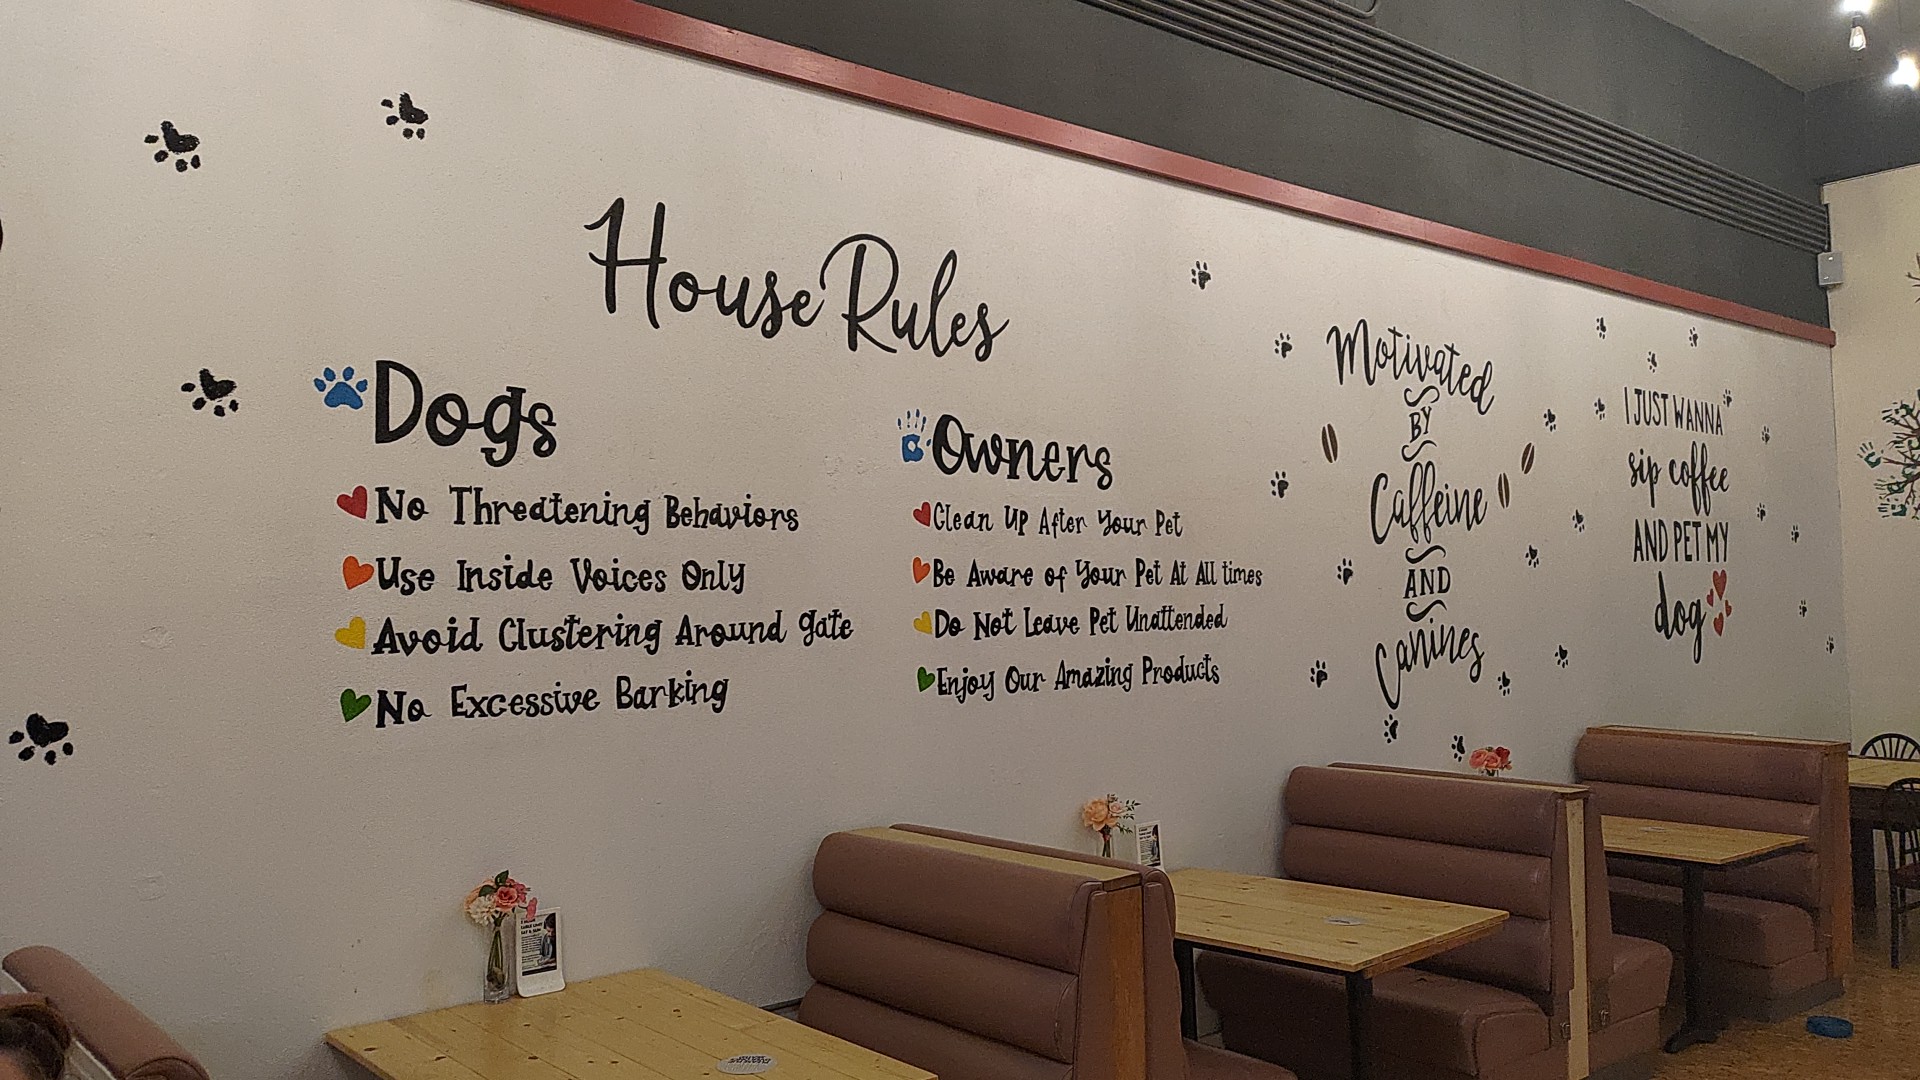 House Rules
Dogs
No Threatening Behaviors
Use Inside Voices Only
Avoid Clustering Around gate
No Excessive Barking
Owners
Clean Up After Your Pet
Be Aware of Your Pet At All times
Do Not Leave Pet Unattended
Enjoy Our Amazing Products
Motivated
BY
Caffeine
AND
Canines
I JUST WANNA
sip coffee
AND PET MY
dog